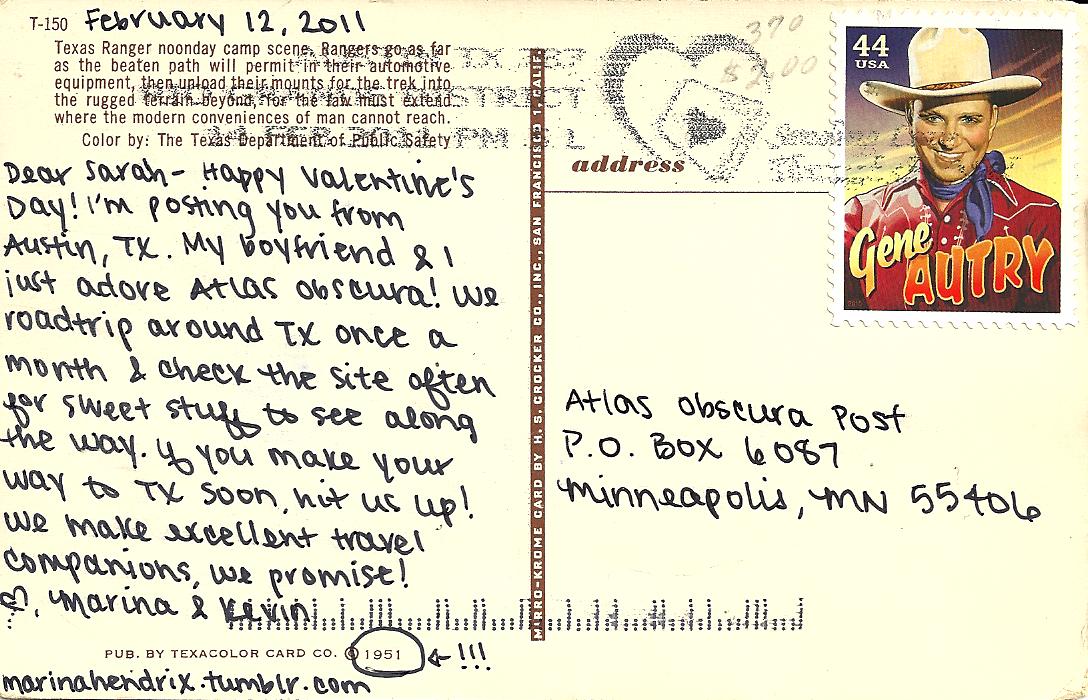 T-150 February 12, 2011
Texas Ranger noonday camp scene. Rangers go as far
as the beaten path will permit in their automotive
equipment, then unload their mounts for the trek into
the rugged terrain beyond, for the law must extend
where the modern conveniences of man cannot reach.
Color by: The Texas Department of Public Safety
Dear Sarah- Happy Valentine's
Day! I'm posting you from
Austin, TX. My boyfriend & I
just adore Atlas Obscura! We
roadtrip around TX once a
month & check the site often
for sweet stuff to see along
the way. If you make your
way to TX soon, hit us up!
We make excellent travel
companions, we promise!
♡, Marina & Kevin
PUB. BY TEXACOLOR CARD CO. © 1951 ← !!!
marinahendrix.tumblr.com
MIRRO-KROME CARD BY H. S. CROCKER CO., INC., SAN FRANCISCO 1, CALIF.
390
$2.00
DISTRICT
FEB 2011 PM
address
44
USA
Gene
AUTRY
Atlas Obscura Post
P.O. Box 6087
Minneapolis, MN 55406